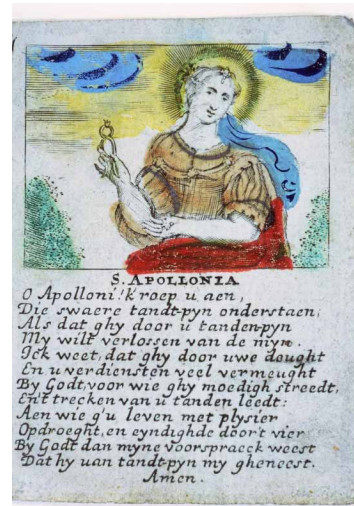 S. APOLLONIA
O Apolloni! k'roep u aen,
Die swaere tandt-pyn onderstaen,
Als dat ghy door u tanden-pyn
My wilt verlossen van de myn.
Ick weet, dat ghy door uwe deught
En u verdiensten veel vermeught
By Godt, voor wie ghy moedigh streedt,
En't trecken van u tanden leedt:
Aen wie g'u leven met plysier
Opdroeght, en eyndighde door't vier
By Godt dan myne voorspraeck weest
Dat hy van tandt-pyn my gheneest.
Amen.